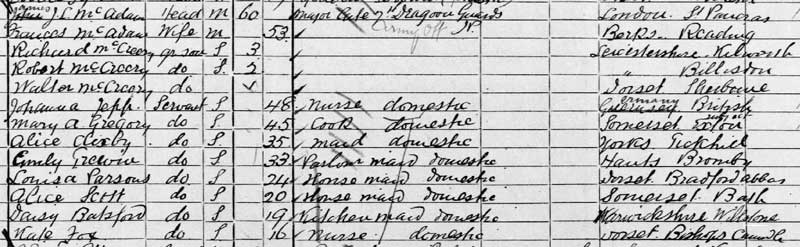 J C McAdam Head M 60 Major late 7th Dragoon Guards London St Pancras
Frances McAdam Wife M 53 Army Off Berks Reading
Richard McCreery gr son S 3 Leicestershire Kilworth
Robert McCreery do S 2 " Billesdon
Walter McCreery do Dorset Sherborne
Johanna Jepp Servant S 48 Nurse domestic Germany British Subject
Mary A Gregory do S 45 Cook domestic Somerset
Alice do S 35 Maid domestic Yorks
Emily do S 33 Parlour maid domestic Hants
Louisa Parsons do S 24 House maid domestic Dorset Bradford Abbas
Alice Scott do S 20 House maid domestic Somerset Bath
Daisy Batsford do S 19 Kitchen maid domestic Warwickshire
Kate Fox do S 16 Nurse domestic Dorset Bishops Caundle